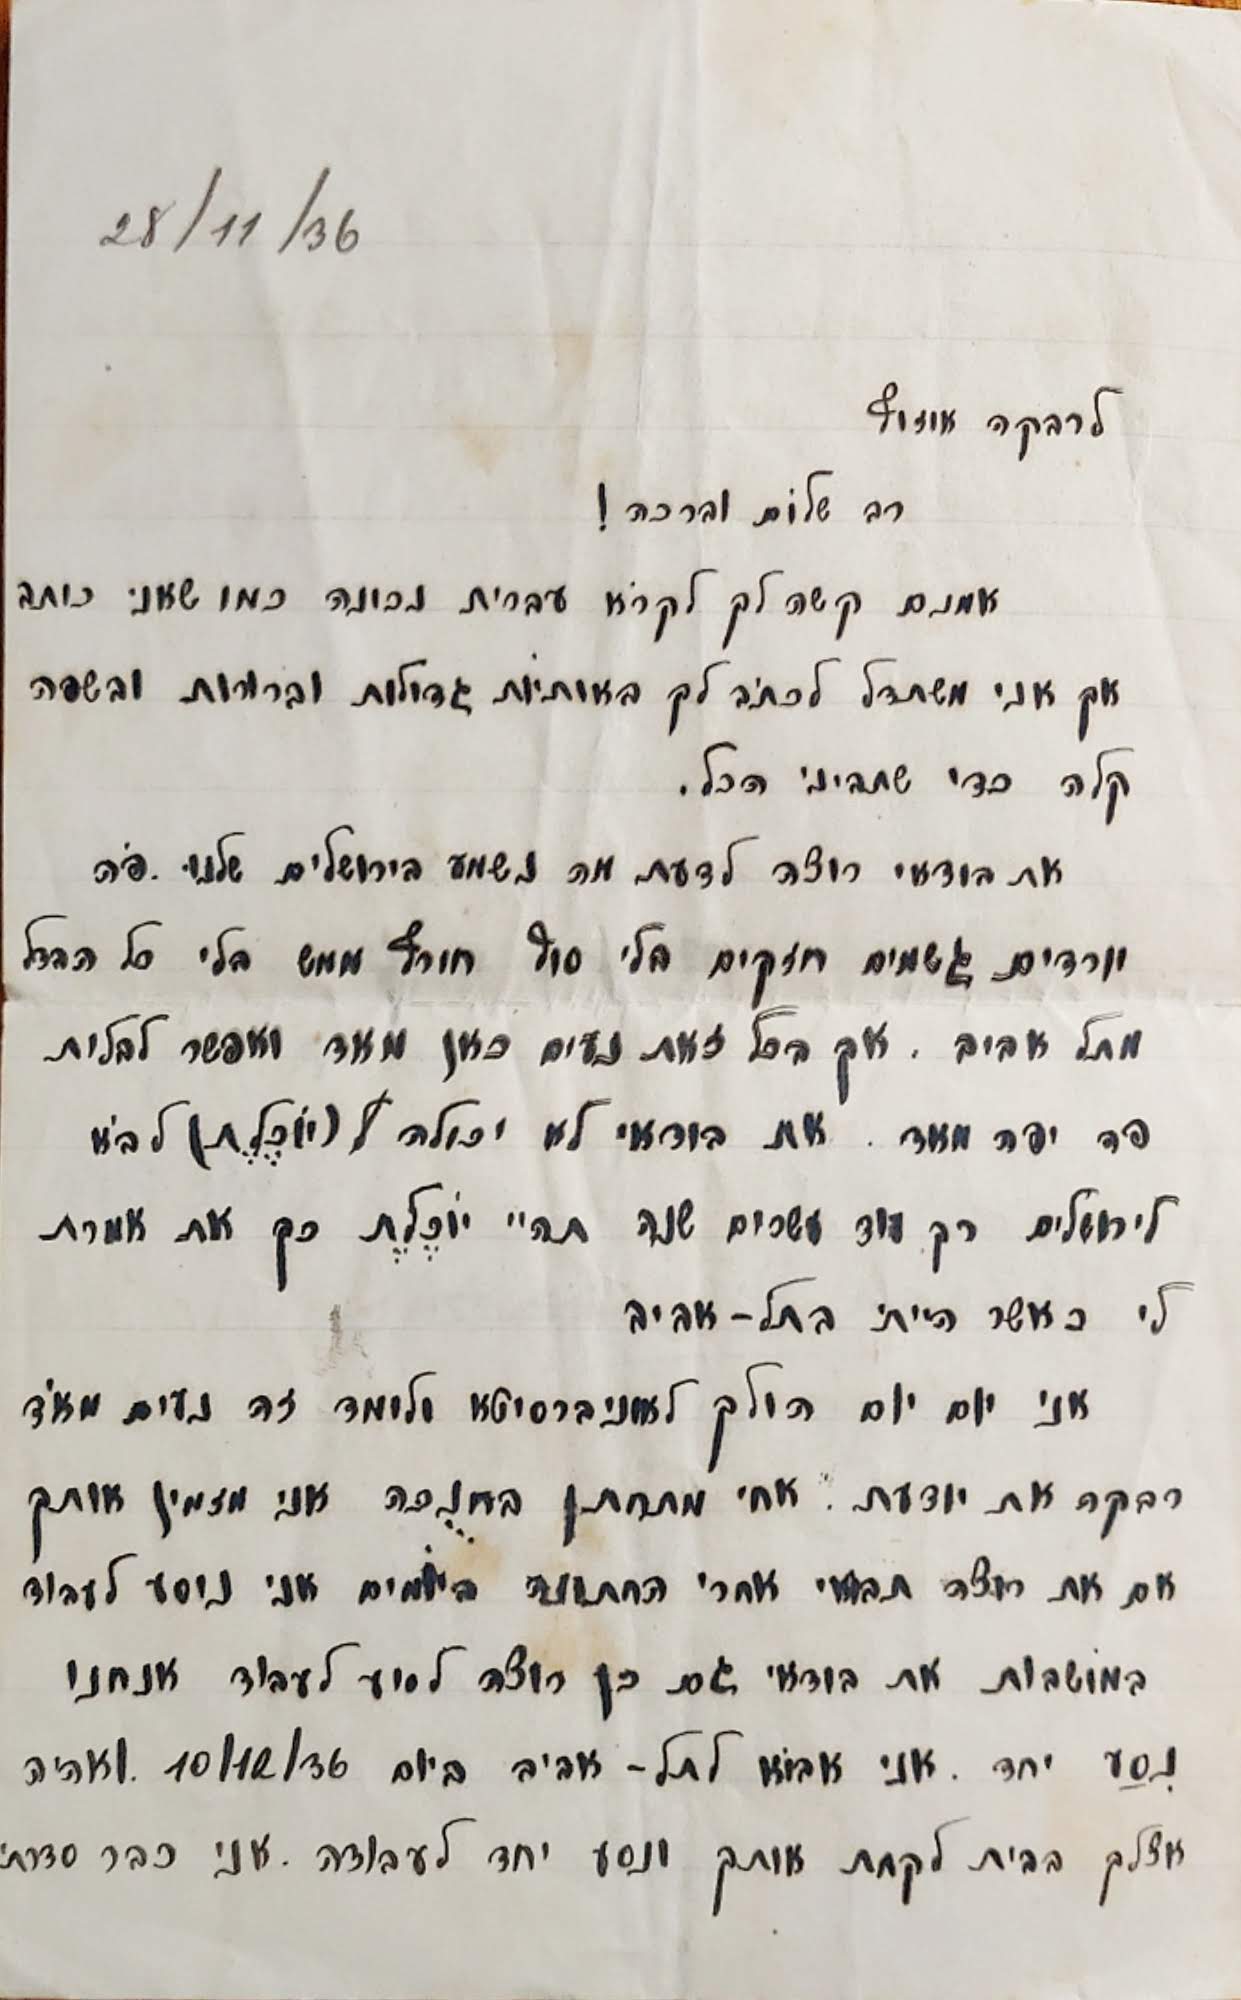 28/11/36
לרבקה אוזוף
רב שלום וברכה!
אמנם קשה לך לקרא עברית נכונה כמו שאני כותב
אך אני משתדל לכתב לך באותיות גדולות וברורות ובשפה
קלה כדי שתביני הכל.
את בודאי רוצה לדעת מה נשמע בירושלים שלנו. פה
יורדים גשמים חזקים בלי סוף חורף ממש בלי כל הבדל
מתל אביב. אך בכל זאת נעים כאן מאד ואפשר לבלות
פה יפה מאד. את בודאי לא יכולה (יוֹכֶלֶת) לבא
לירושלים רק עוד עשרים שנה תהיי יוֹכֶלֶת כך את אמרת
לי כאשר הייתי בתל-אביב
אני יום יום הולך לאוניברסיטא ולומד זה נעים מאד
רבקה את יודעת. אחי מתחתן בחֲנֻכה אני מזמין אותך
אם את רוצה תבואי אחרי החתונה ביומים אני נוסע לעבוד
במושבות את בודאי גם כן רוצה לסוע לעבוד אנחנו
נִסַע יחד. אני אבוא לתל-אביב ביום 10/12/36. ואהיה
אצלך בבית לקחת אותך ונסע יחד לעבודה. אני כבר סדרתי